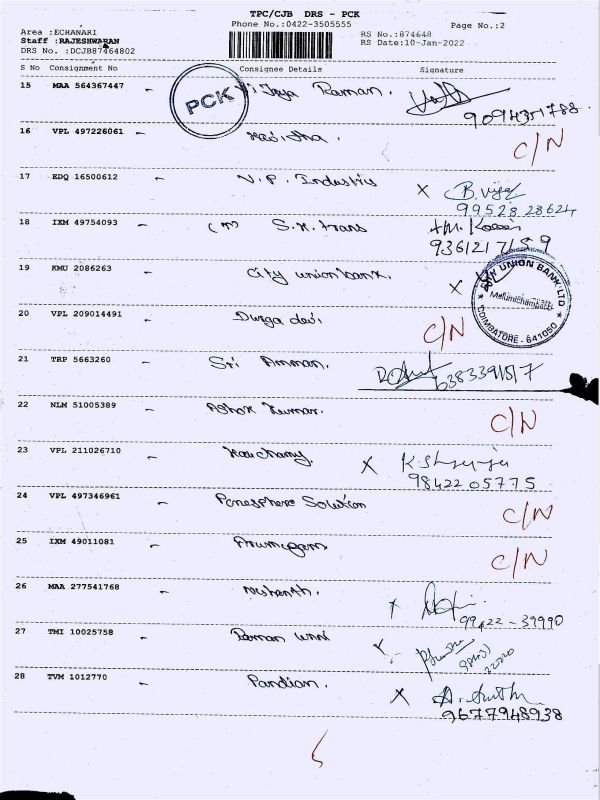 TPC/CJB DRS - PCK
Phone No.:0422-3505555
Page No.:2
Area :ECHANARI
Staff :RAJESHWARAN
DRS No. :DCJB87464802
RS No.:874648
RS Date:10-Jan-2022
S No Consignment No Consignee Details Signature
15 MAA 564367447 - Vijaya Raman.
PCK
9094351788
16 VPL 497226061 - Kavitha. C/N
17 EDQ 16500612 - V.P. Industries X B.
99528 28624
18 IXM 49754093 - S.K. trans
9361217159
19 KMU 2086263 - City union bank. X
UNION BANK LTD
COIMBATORE - 641050
20 VPL 209014491 - Durga devi C/N
21 TRP 5663260 - Sri Amman.
6383391517
22 NLM 51005389 - Ashok Kumar. C/N
23 VPL 211026710 - X K.
98422 05775
24 VPL 497346961 - Solution C/N
25 IXM 49011081 - Arumugam C/N
26 MAA 277541768 - Nishanth.
99422-39990
27 TMI 10025758 - Raman unni
28 TVM 1012770 - Pandian. X
9677948938